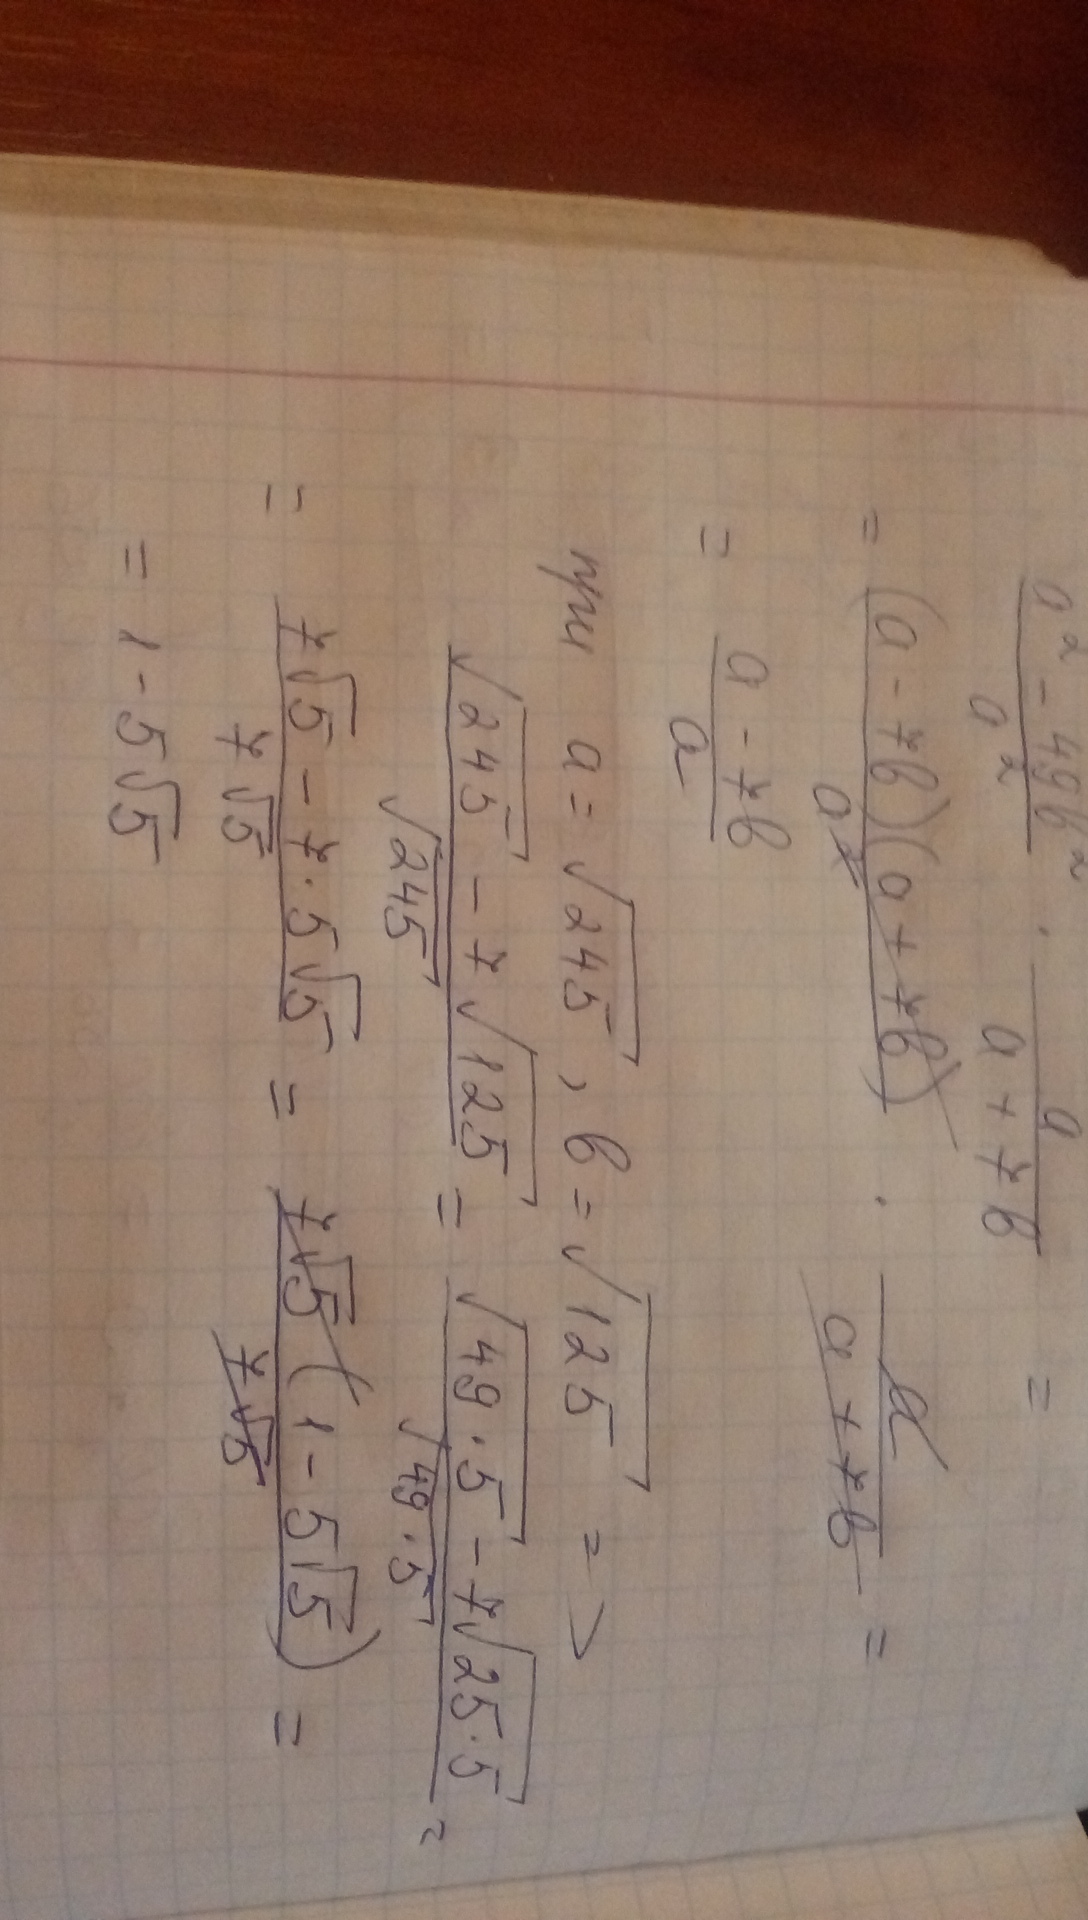 (a² - 49b²)/a² · a/(a + 7b) =
= ((a - 7b)(a + 7b))/a² · a/(a + 7b) =
= (a - 7b)/a
при a = √245, b = √125 =>
(√245 - 7√125)/√245 = (√49·5 - 7√25·5)/√49·5 =
= (7√5 - 7·5√5)/(7√5) = (7√5(1 - 5√5))/(7√5) =
= 1 - 5√5